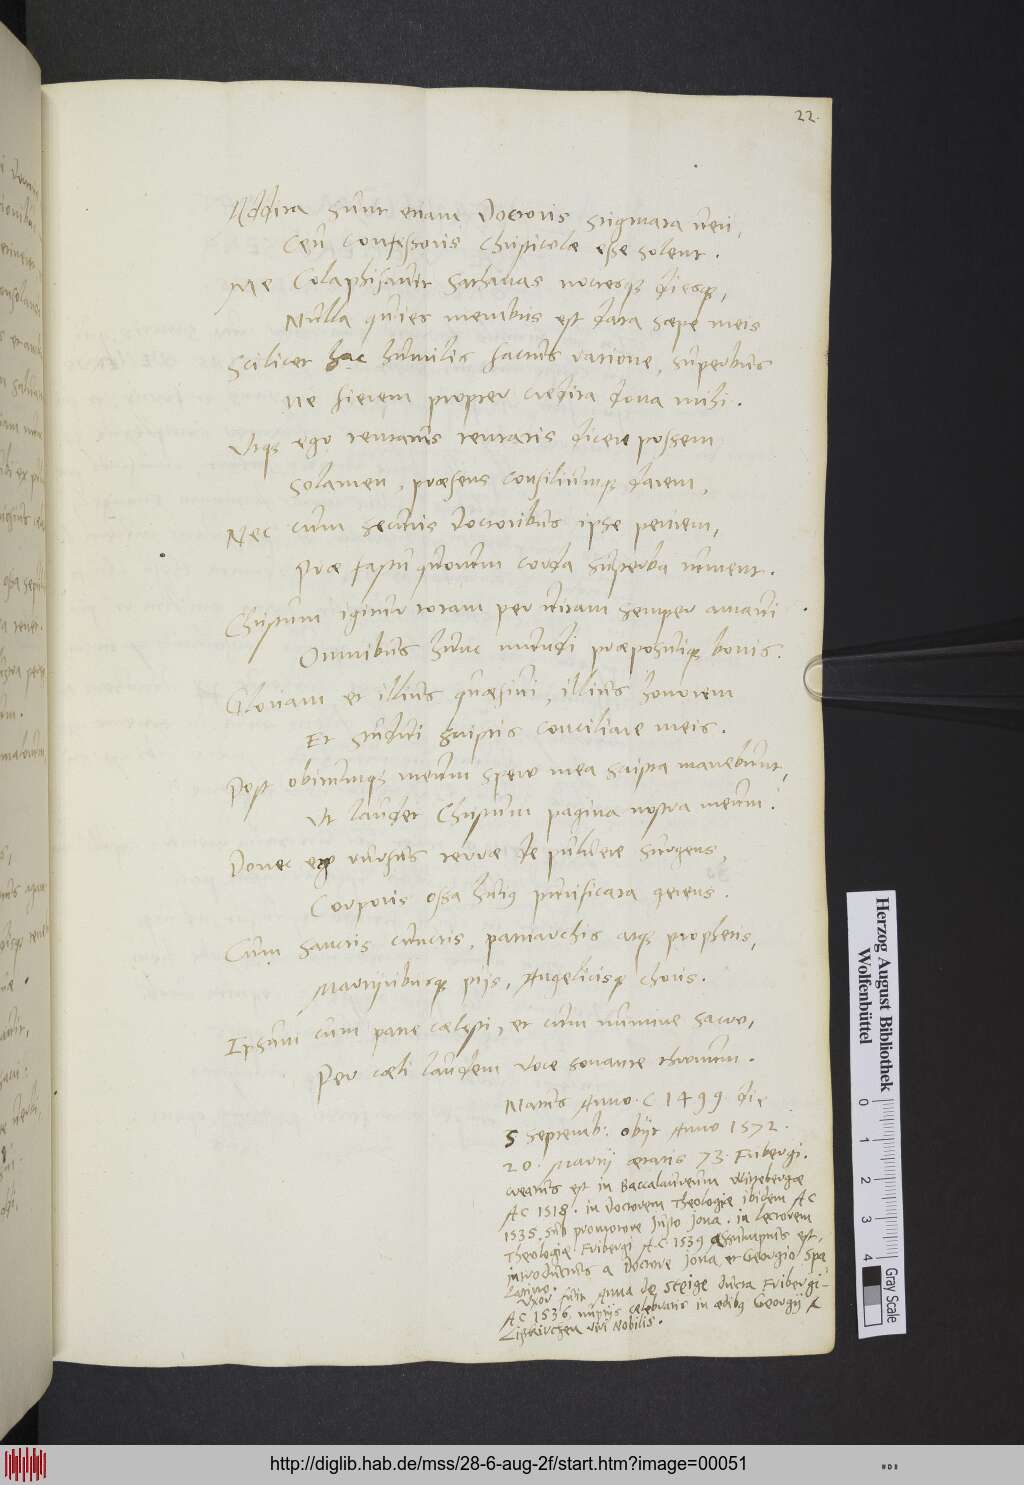 22.
Addita sunt etiam Doctoris stigmata veri,
Ceu confessoris Christicolae esse solent.
Me Colaphisavit Sathanas noctesque diesque,
Nulla quies membris est data saepe meis
Scilicet hac humilis factus ratione, superbus
Ne fierem propter credita dona mihi.
Utque ego tentatus tentatis dicere possem
Solamen, praesens consiliumque darem,
Nec cum securis doctoribus ipse perirem,
Prae fastu quorum corda superba tument.
Christum igitur totam per vitam semper amavi
Omnibus hunc mundi praeposuique bonis.
Gloriam et illius quaesivi, illius honorem
Et studui scriptis conciliare meis.
Post obitumque meum spero mea scripta manebunt,
Ut laudet Christum pagina nostra meum.
Donec ego rursus terrae de pulvere surgens,
Corporis ossa huius purificata gerens.
Cum sanctis cunctis, patriarchis atque prophetis,
Martyribusque piis, Angelicisque choris.
Ipsum cum patre coelesti, et cum numine sacro,
Per caeli laudem voce sonante thronum.
Natus Anno. C 1499 die
5 Septemb: obijt Anno 1572.
20. Martij aetatis 73. Fribergi.
creatus est in Baccalaureum Witebergae
AC 1518. in Doctorem Theologiae ibidem AC
1535. sub promotore Justo Jona. in lectorem
Theologiae Fribergi AC 1539 assumptus est,
introductus a Doctore Jona, et Georgio Spa
latino.
Uxor fuit Anna de Steige ducta Fribergi
AC 1536 nuptijs celebratis in aedibus Georgij A
Lisskirchen viri Nobilis.
Herzog August Bibliothek
Wolfenbüttel
0 1 2 3 4
Gray Scale
http://diglib.hab.de/mss/28-6-aug-2f/start.htm?image=00051